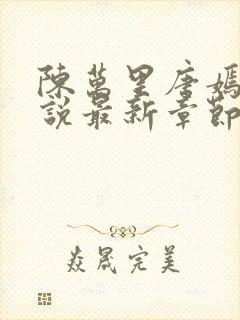 陳萬里唐嫣
說最新章節
焱晟完美